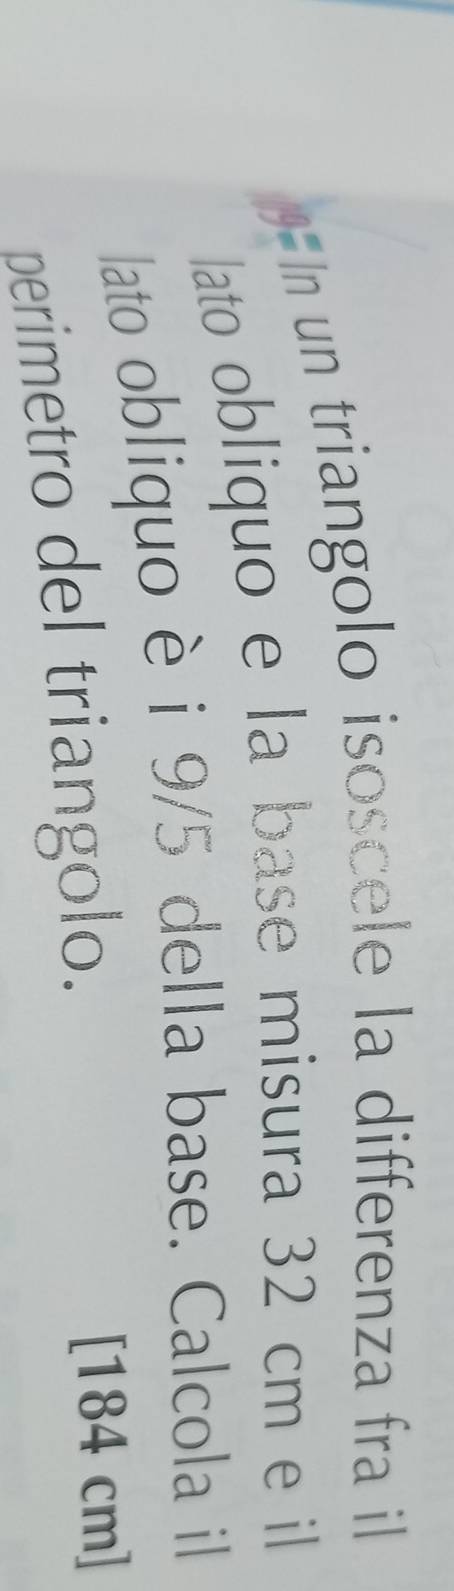 In un triangolo isoscele la differenza fra il
lato obliquo e la base misura 32 cm e il
lato obliquo è i 9/5 della base. Calcola il
perimetro del triangolo. [184 cm]